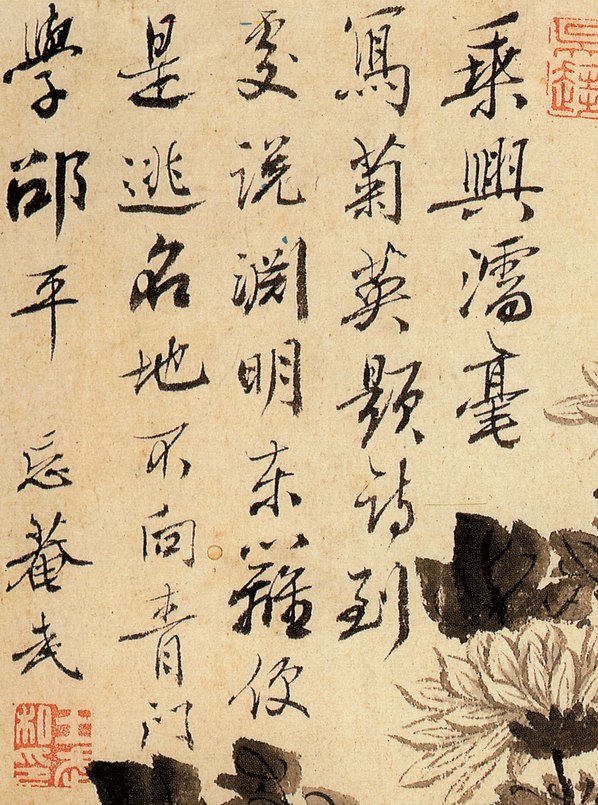 乘興濡毫
寫菊英題詩到
處說淵明東籬便
是逃名地不向青門
學邵平 忘菴武
王武私印